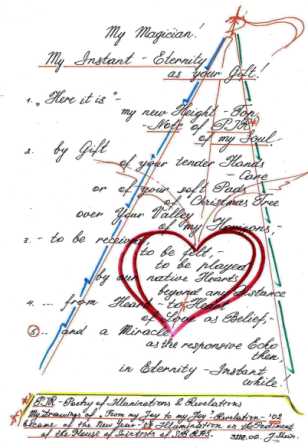 My Magician!
My Instant - Eternity
as your Gift!
1. "Here it is" -
my new Height - Top
- Note of P.I.R.*
of my Soul
2. by Gift
of your tender Hands
- Care
or of your soft Pads
of Christmas Tree
over Your Valley
of my Horizons, -
3. - to be received
to be felt, -
to be played
by our native Hearts
beyond any Distance
4. ... from Heart - to Heart
of Love as Belief, -
5. .. and a Miracle
as the responsive Echo
then
in Eternity - Instant
while.
* P.I.R. - Poetry of Illuminations & Revelations
* My Drawings of "From my Joy to my Joy" Revelation - '02
of the New Year - '03 Illumination on the
of the House of